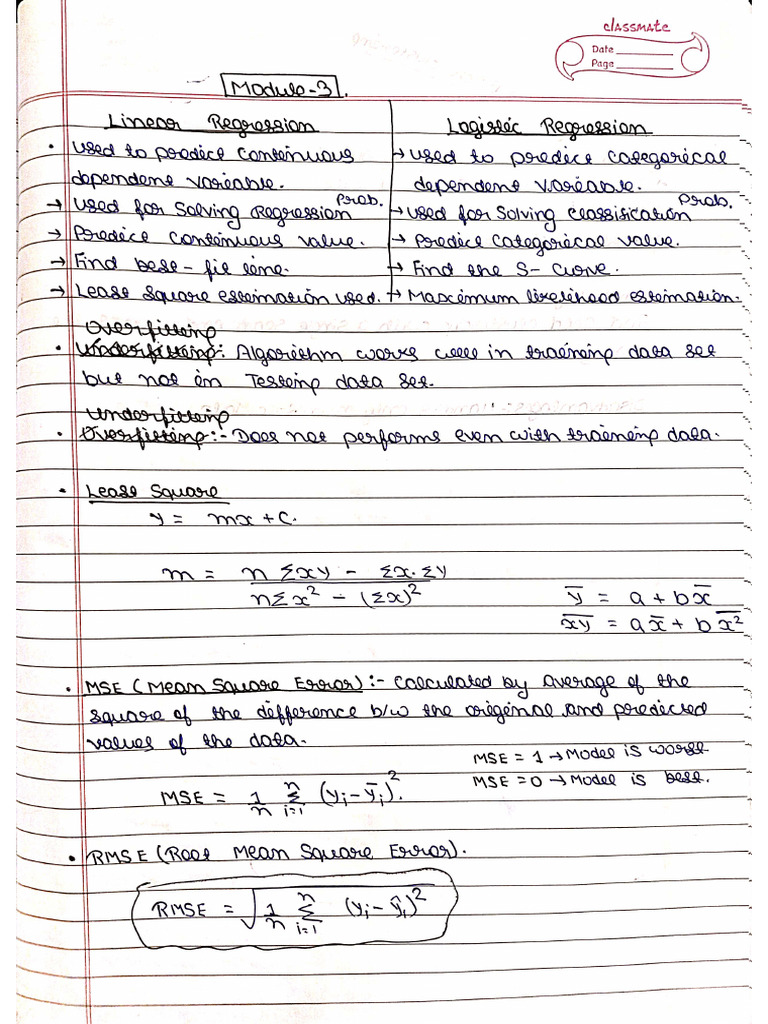 classmate
Date
Page
Module-3.
Linear Regression
• Used to predict continuous
dependent variable.
→ Used for Solving Regression Prob.
→ Predict continuous value.
→ Find best-fit line.
→ Least square estimation used.
Logistic Regression
→ Used to predict categorical
dependent variable.
→ Used for Solving Classification Prob.
→ Predict categorical value.
→ Find the S-Curve.
→ Maximum likelihood estimation.
Overfitting
• Underfitting: Algorithm works well in training data set
but not in Testing data set.
Underfitting
• Overfitting:- Does not performs even with training data.
• Least Square
y = mx + c.
m = n Σxy - Σx.Σy / nΣx² - (Σx)²
y̅ = a + bx̅
x̅y̅ = ax̅ + b x̅²
• MSE (Mean Square Error):- Calculated by average of the
square of the difference b/w the original and predicted
values of the data.
MSE = 1 → Model is worst
MSE = 0 → Model is best.
MSE = 1/n Σ i=1 n (yi - y̅i)².
• RMSE (Root Mean Square Error).
RMSE = √ 1/n Σ i=1 n (yi - y̅i)²